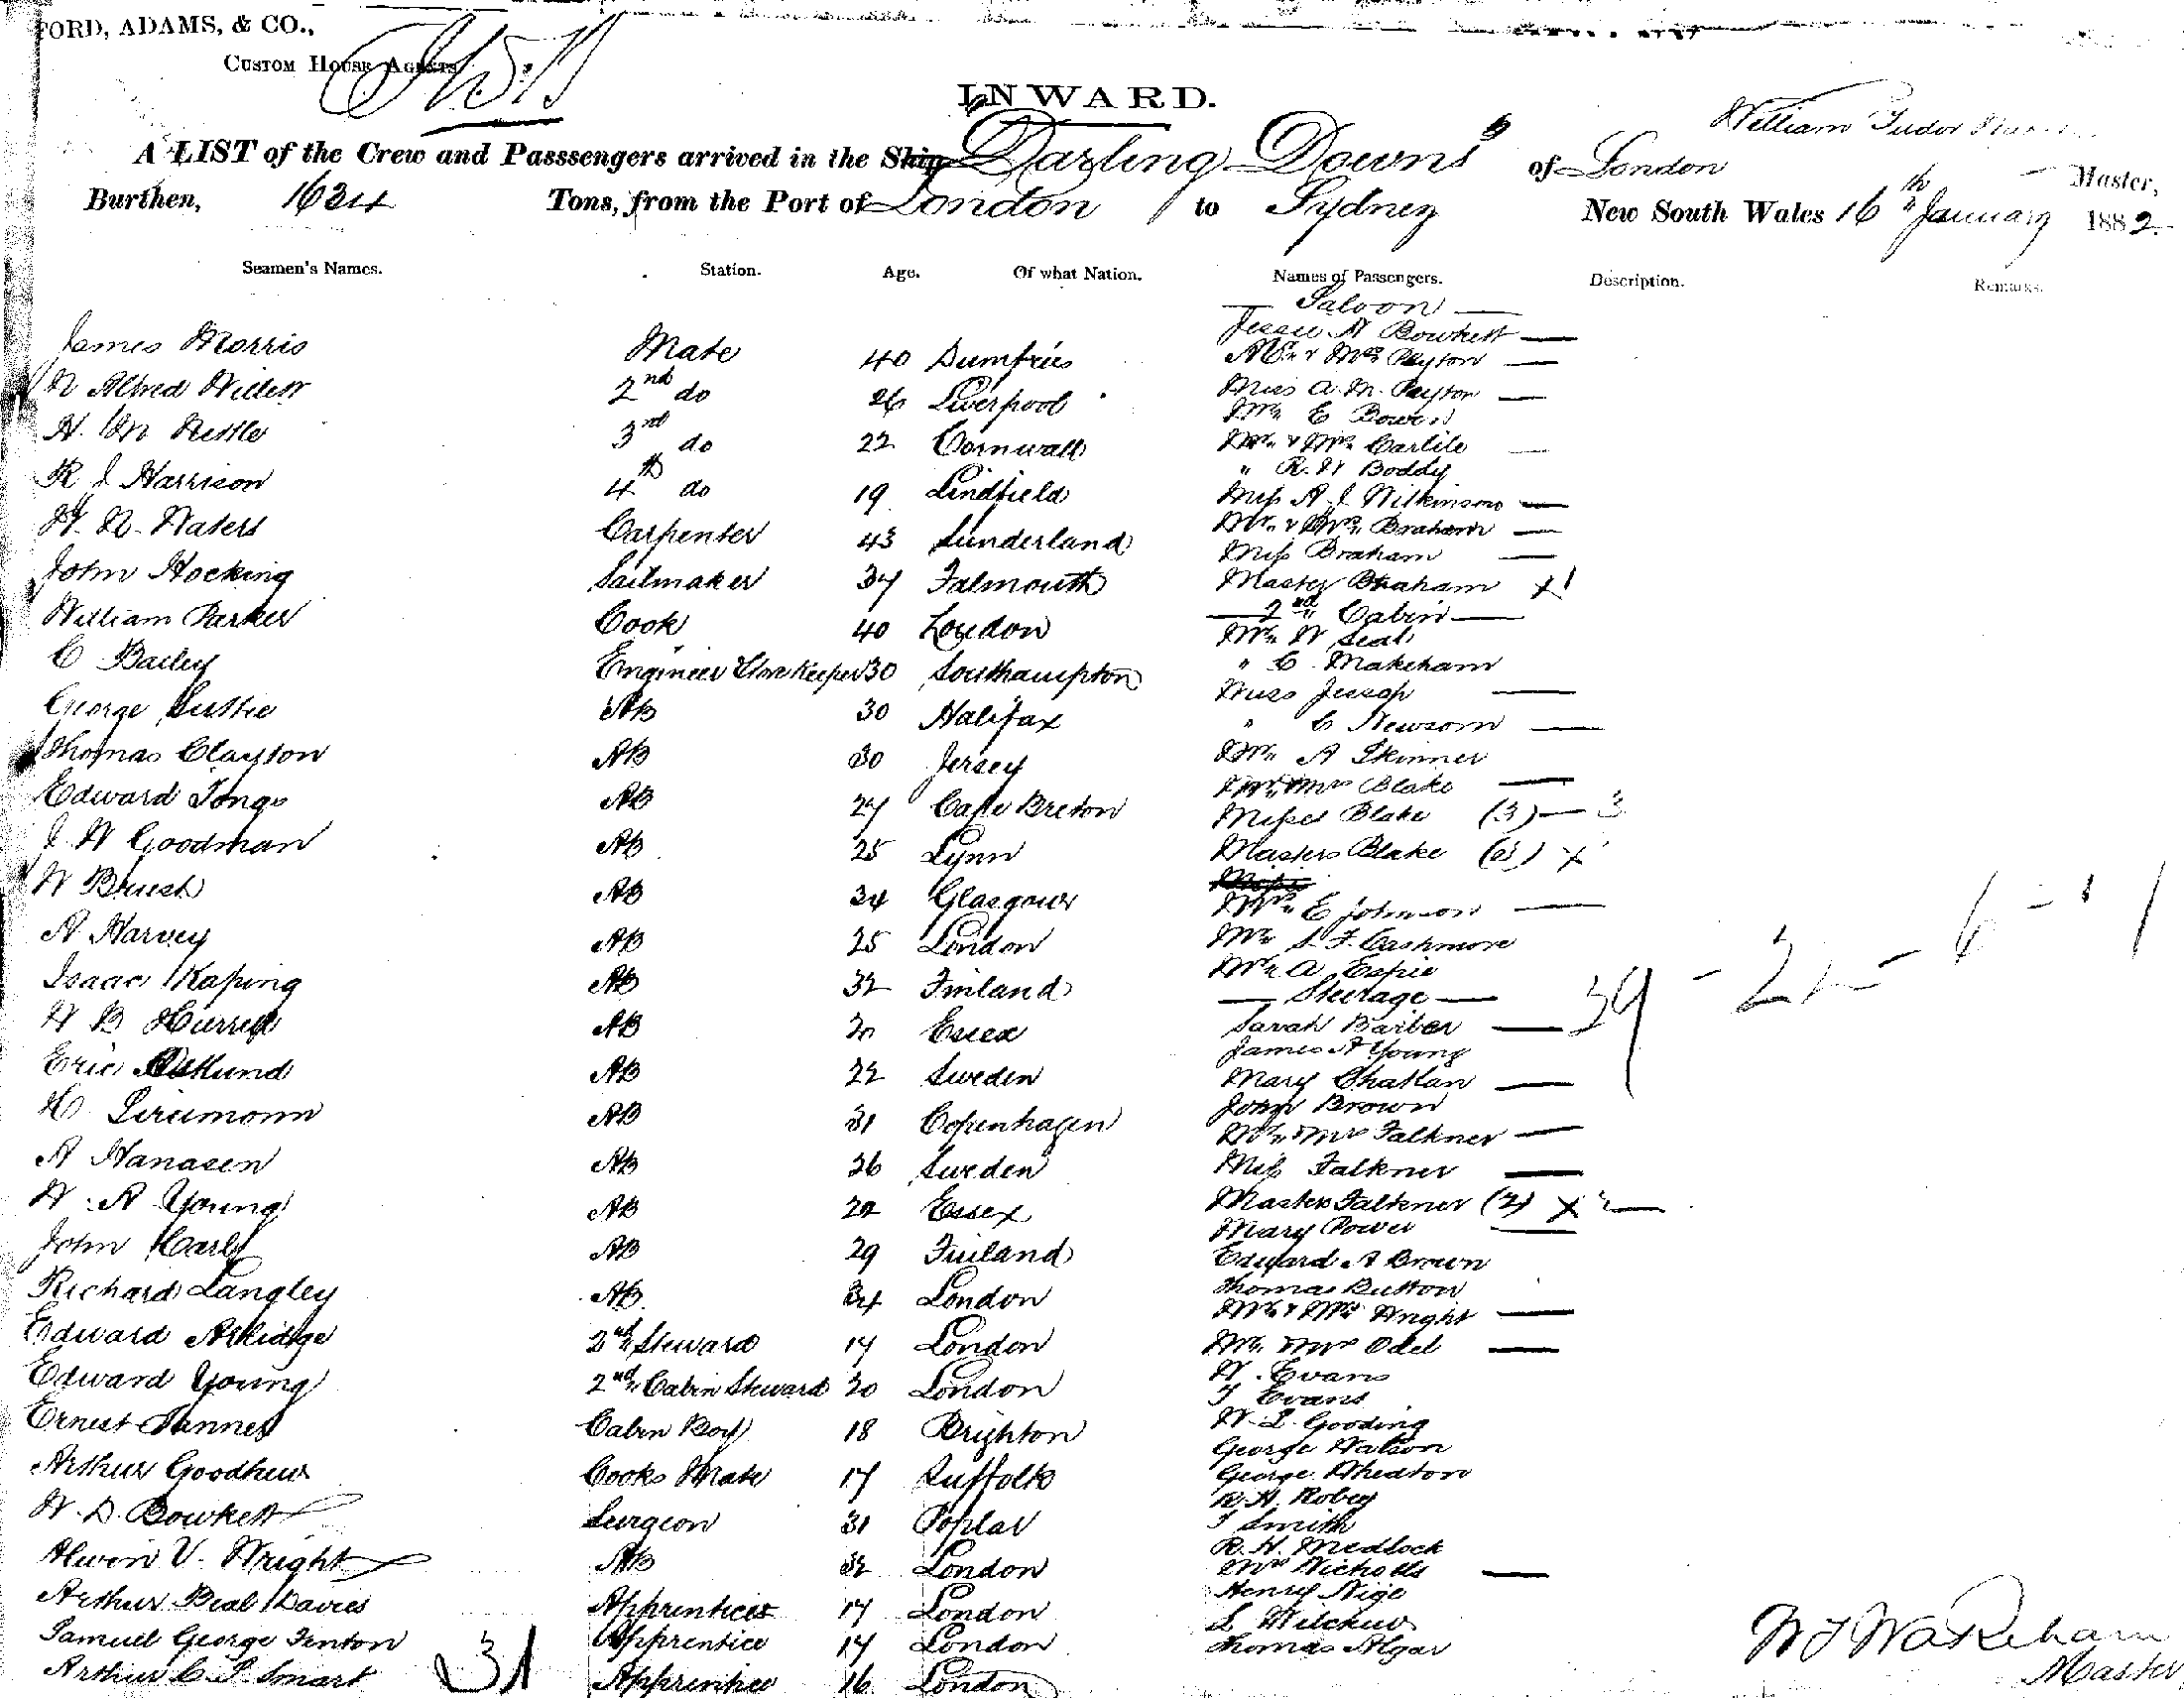 FORD, ADAMS, & CO.,
CUSTOM HOUSE AGENTS
INWARD.
William Tudor
A LIST of the Crew and Passsengers arrived in the Ship Darling Downs of London Master,
Burthen, 1634 Tons, from the Port of London to Sydney New South Wales 16th January 1882
Seamen's Names. Station. Age. Of what Nation. Names of Passengers. Description. Remarks.
James Morris Mate 40 Dumfries
Alfred 2nd do 26 Liverpool
H. 3rd do 22 Cornwall
R J Harrison 4th do 19 Lindfield
Waters Carpenter 43 Sunderland
John Hocking Sailmaker 37 Falmouth
William Parker Cook 40 London
C Bailey Engineer 30 Southampton
George AB 30 Halifax
Thomas Clayton AB 30 Jersey
Edward Tongs AB 27 Cape Breton
J W Goodman AB 25 Lynn
W AB 34 Glasgow
A Harvey AB 25 London
Isaac Kaping AB 32 Finland
W B AB Essex
Eric AB 22 Sweden
AB 31 Copenhagen
A Hanasen AB 26 Sweden
W. A Young AB Essex
John Karl AB 29 Finland
Richard Langley AB 34 London
Edward 2nd Steward 17 London
Edward Young 2nd Cabin Steward 20 London
Ernest Cabin Boy 18 Brighton
Arthur Goodhew Cooks Mate 17 Suffolk
W. D. Bowkett Surgeon 31 Poplar
Alwin V. Wright AB 32 London
Arthur Beal Davies Apprentice 17 London
Samuel George Fenton Apprentice 17 London
Arthur C. S. Smart Apprentice 16 London
31
Saloon
Jessie A Bowkett
Mr & Mrs Payton
Miss A. M. Payton
Mr E Bower
Mr & Mrs Carlile
" R. W Boddy
Miss A J. Wilkinson
Mr & Mrs Braham
Miss Braham
Master Braham X 1
2nd Cabin
Mr W Seal
" C. Makeham
Miss Jessop
" C Newsom
Mr A Skinner
Mr & Mrs Blake
Misses Blake (3) 3
Masters Blake (3) X
Mrs E Johnson
Mr S. F. Cashmore
Mr A Espie
Steerage
Sarah Barber
James A Young
Mary
John Brown
Mr & Mrs Falkner
Miss Falkner
Masters Falkner (2) X 2
Mary Power
Edward A Brown
Thomas Button
Mr & Mrs Wright
Mr & Mrs Odel
W. Evans
T Evans
W. L. Gooding
George Watson
George Wheaton
R. H. Robey
T Smith
R. H. Medlock
Mrs Nicholls
Henry Nige
S
Thomas Algar
39 - 22 - 6 - 1
W T Wakeham
Master